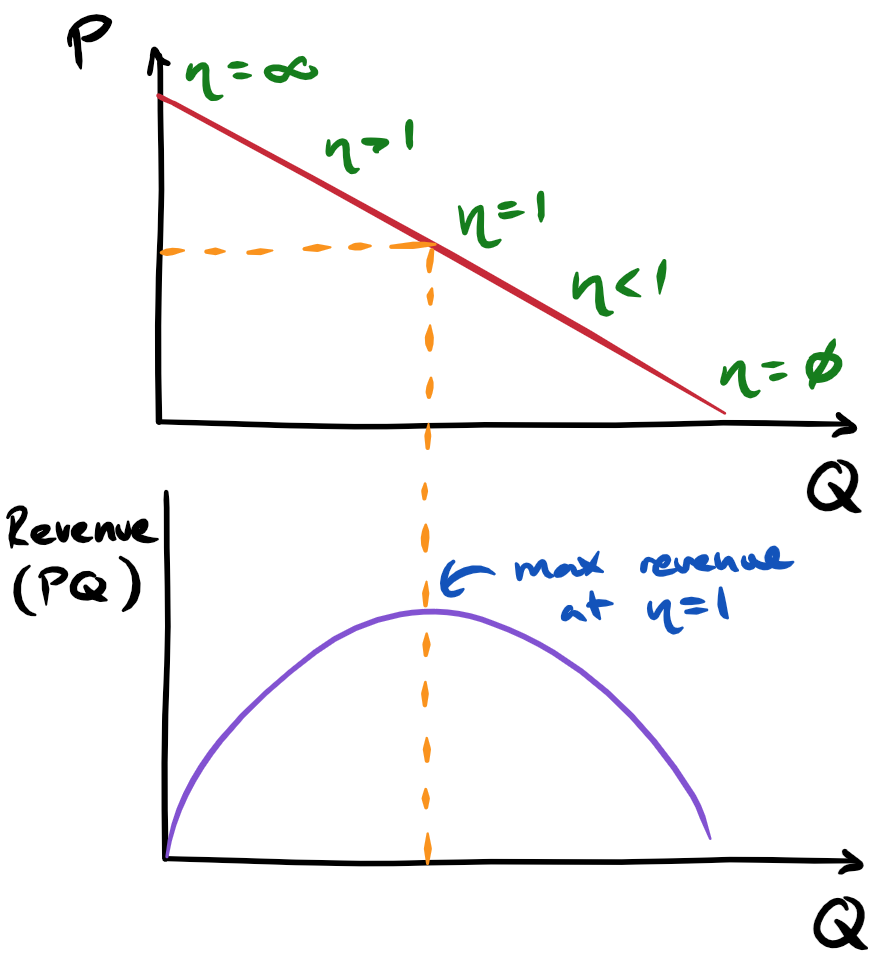 P
η = ∞
η > 1
η = 1
η < 1
η = ∅
Q
Revenue
(PQ)
max revenue
at η = 1
Q